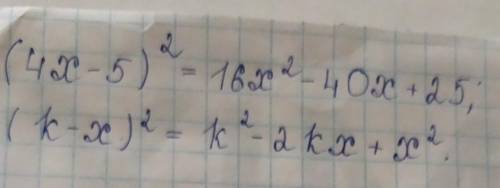 (4x-5)² = 16x² - 40x + 25;
(k-x)² = k² - 2kx + x².